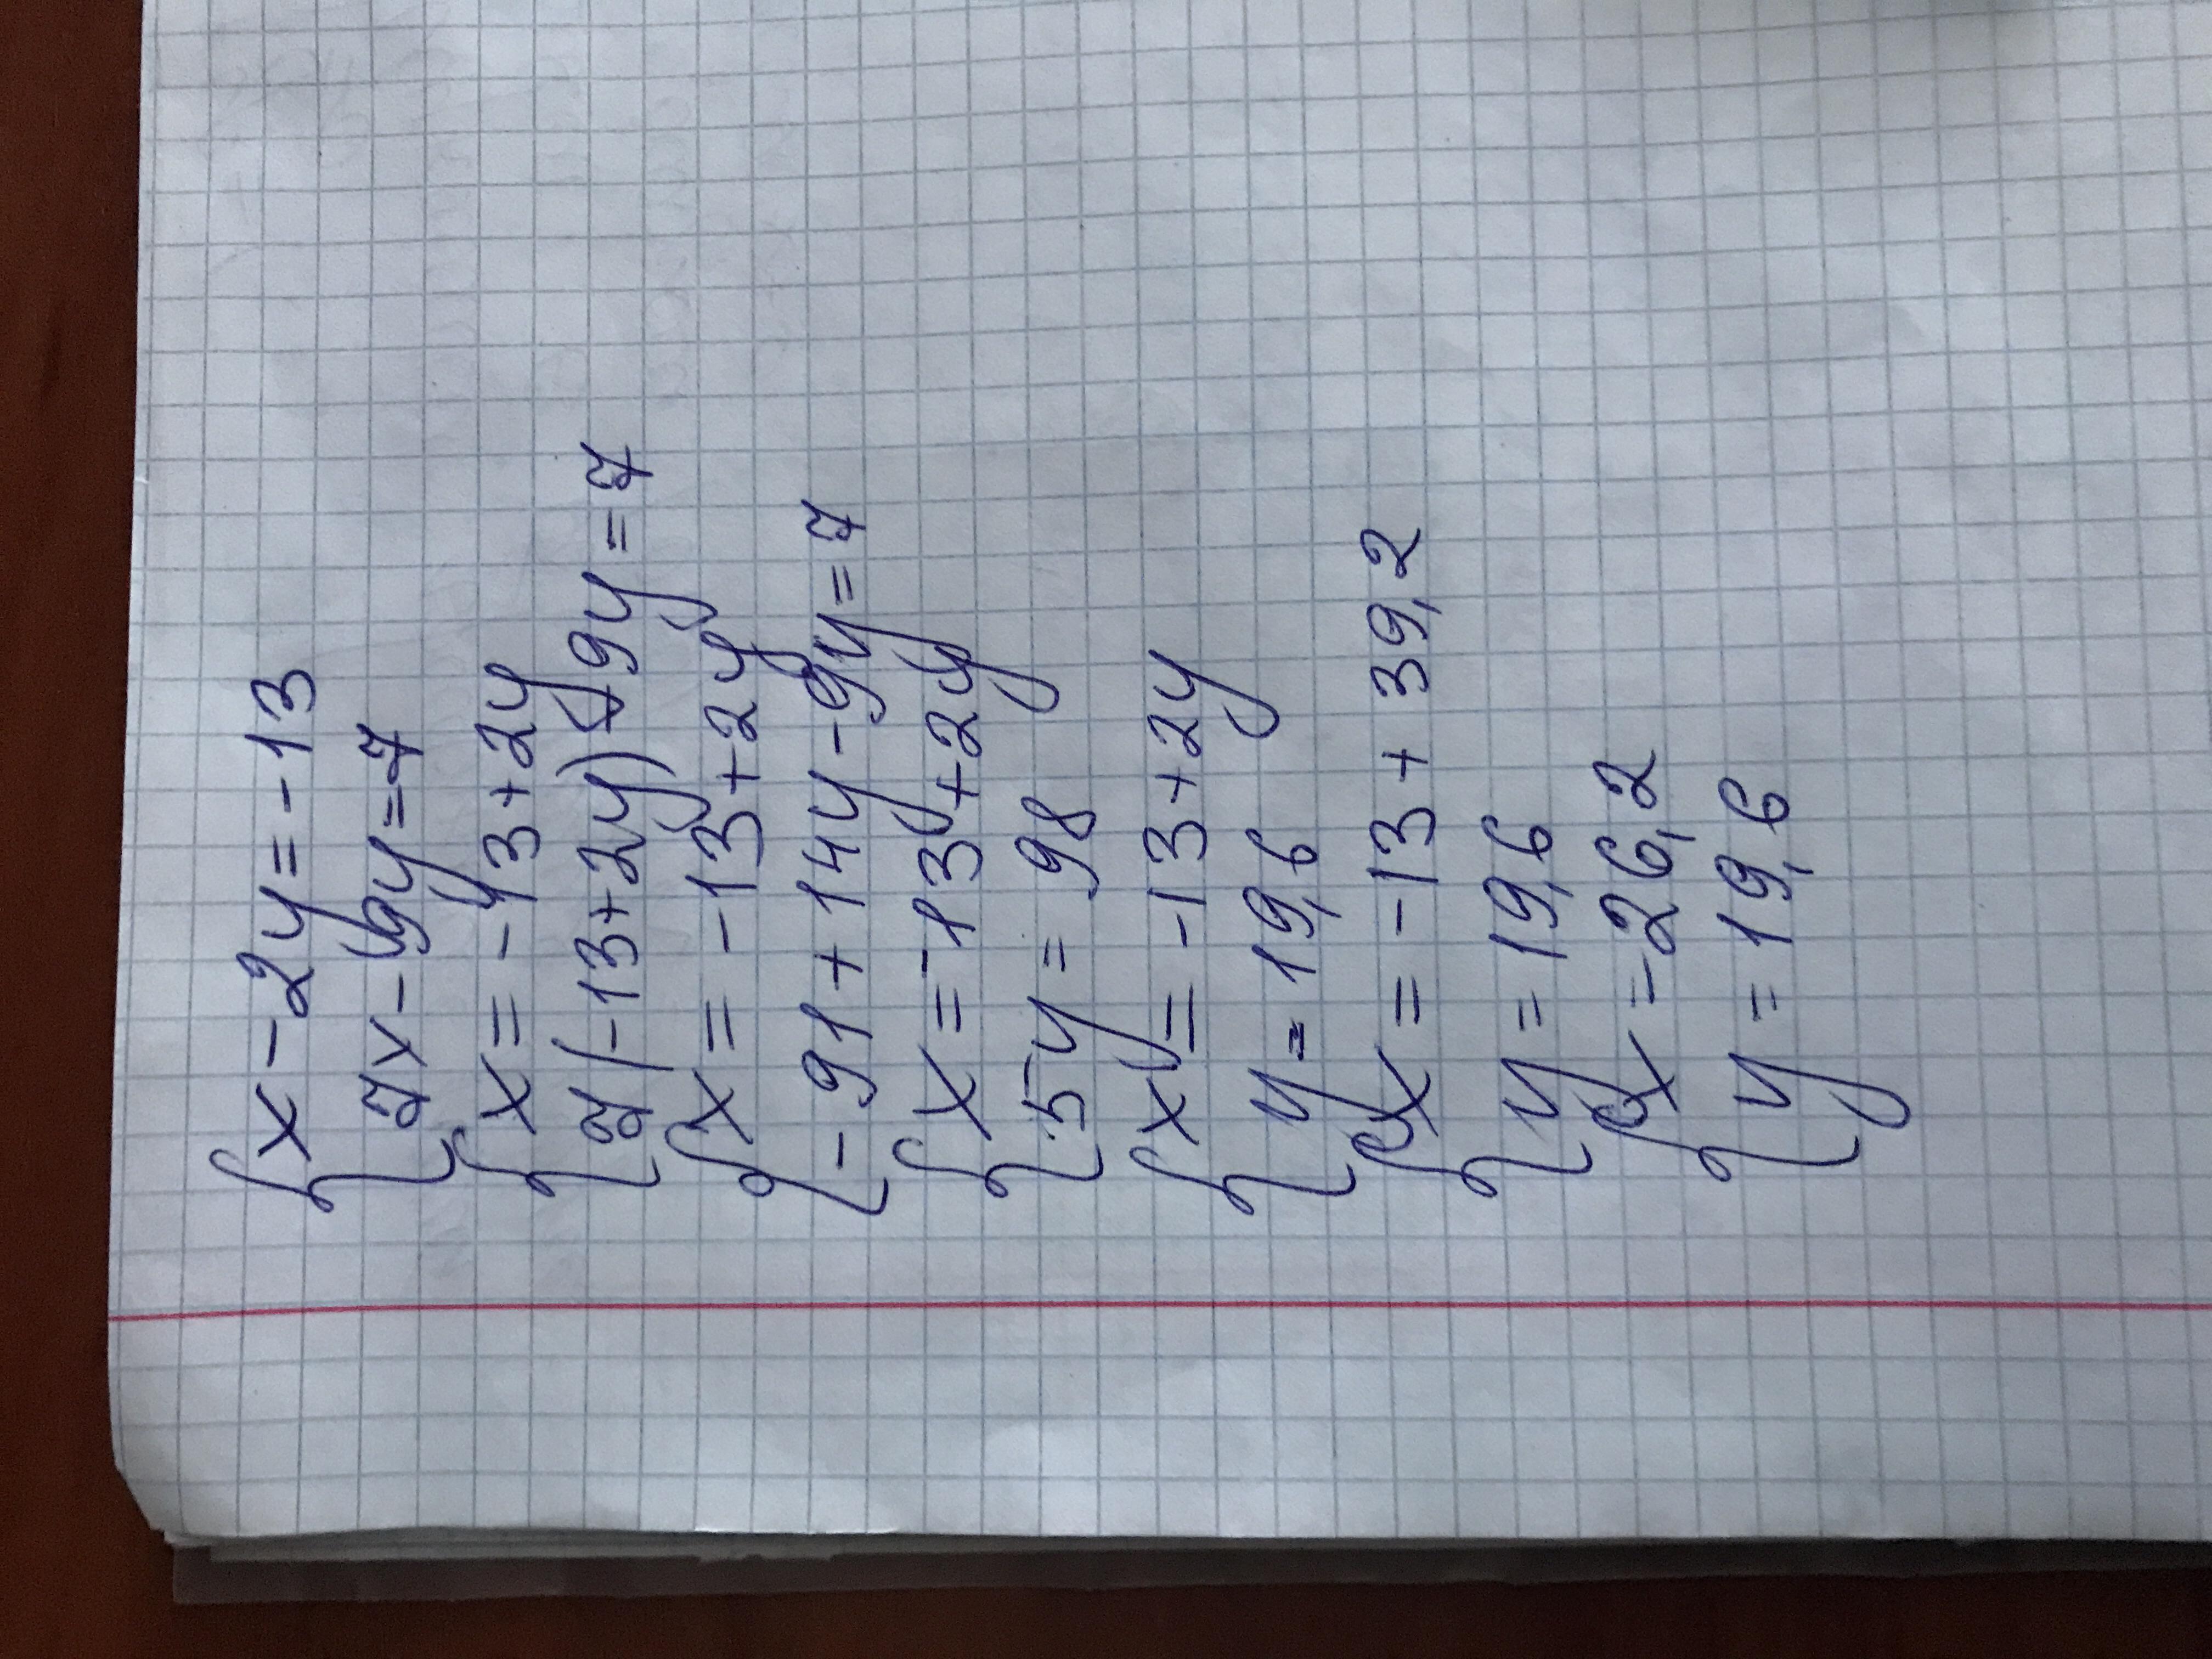 {x-2y=-13
7x-9y=7
{x=-13+2y
7(-13+2y)-9y=7
{x=-13+2y
-91+14y-9y=7
{x=-13+2y
5y=98
{x=-13+2y
y=19,6
{x=-13+39,2
y=19,6
{x=26,2
y=19,6